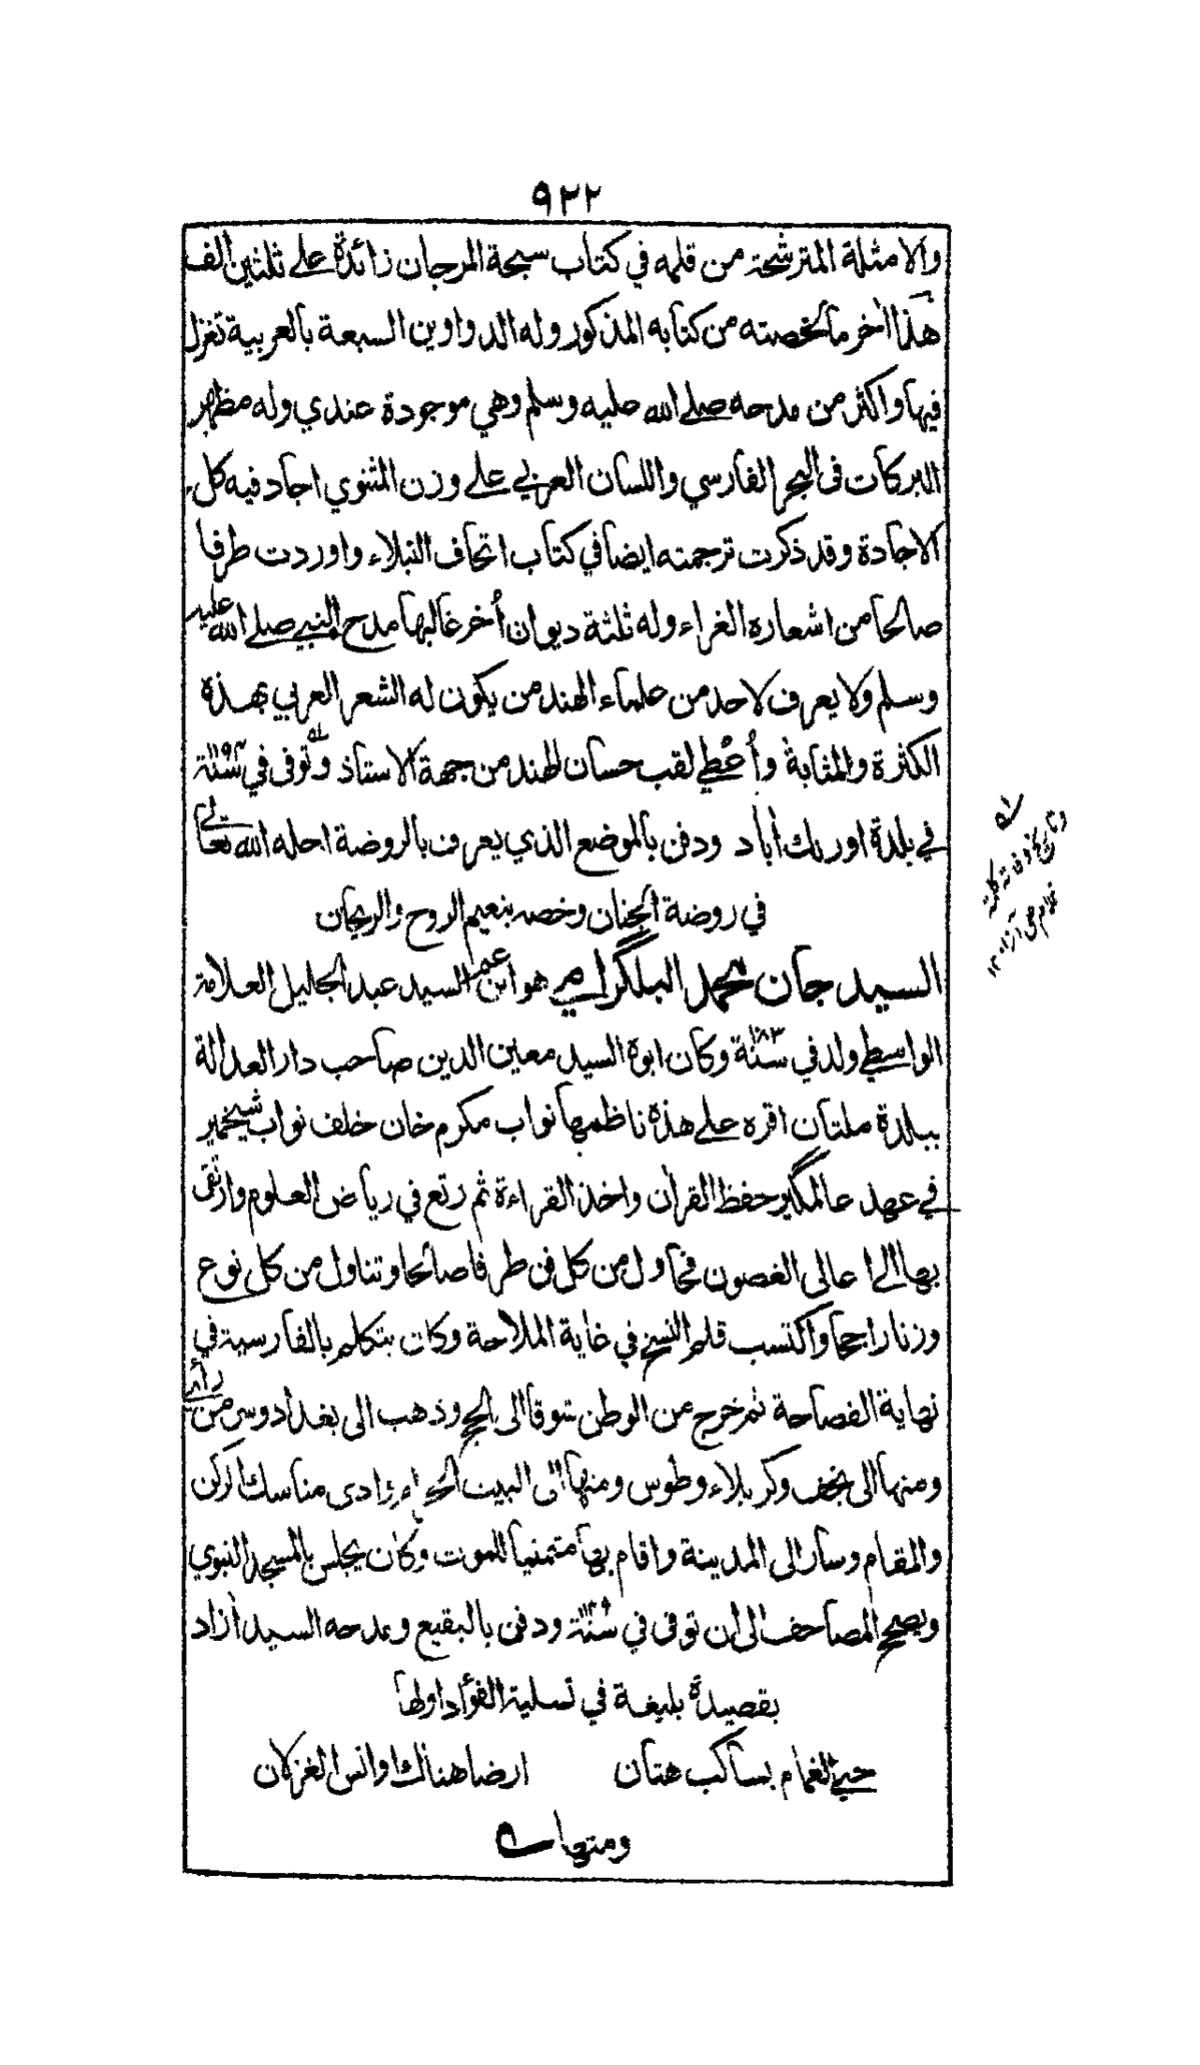 ٩٢٢
والامثلة المترشحة من قلمه في كتاب سبحة المرجان زائدة على ثلثين الف
هذا آخر ما لخصته من كتابه المذكور وله الدواوين السبعة بالعربية تغزل
فيها واكثر من مدحه صلى الله عليه وسلم وهي موجودة عندي وله مظهر
البركات فى البحر الفارسي واللسان العربي على وزن المثنوي اجاد فيه كل
الاجادة وقد ذكرت ترجمته ايضا في كتاب اتحاف النبلاء واوردت طرفا
صالحا من اشعاره الغراء وله ثلثة ديوان أخر غالبها مدح النبي صلى الله عليه
وسلم ولا يعرف لاحد من علماء الهند من يكون له الشعر العربي بهذه
الكثرة والمثابة وأعطي لقب حسان الهند من جهة الاستاذ وتوفى في سنة
في بلدة اورنك أباد ودفن بالموضع الذي يعرف بالروضة احله الله تعالى
في روضة الجنان وخصه بنعيم الروح والريحان
السيد جان محمد البلگرامي هو ابن عم السيد عبد الجليل العلامة
الواسطي ولد في سنة ١٠٨٣ وكان ابوه السيد معين الدين صاحب دار العدالة
ببلدة ملتان اقره على هذه ناظمها نواب مكرم خان خلف نواب شيخمير
في عهد عالمگير حفظ القرأن واخذ القراءة ثم رتع في رياض العلوم وارتقى
بها الى اعالى الغصون فحاول من كل فن طرفا صالحا وتناول من كل نوع
وزنا راجحا واكتسب قلم النسخ في غاية الملاحة وكان يتكلم بالفارسية في
نهاية الفصاحة ثم خرج من الوطن شوقا الى الحج وذهب الى بغداد وسر من رأى
ومنها الى نجف وكربلاء وطوس ومنها الى البيت الحرام وادى مناسك الركن
والمقام وسار الى المدينة واقام بها متمنيا للموت وكان يجلس بالمسجد النبوي
ويصحح المصاحف الى ان توفى في سنة ودفن بالبقيع ومدحه السيد أزاد
بقصيدة بليغة في تسلية الفؤاد اولها
حيي الغمام بساكب هتان ارضا هناك اوانس الغزلان
ومنها